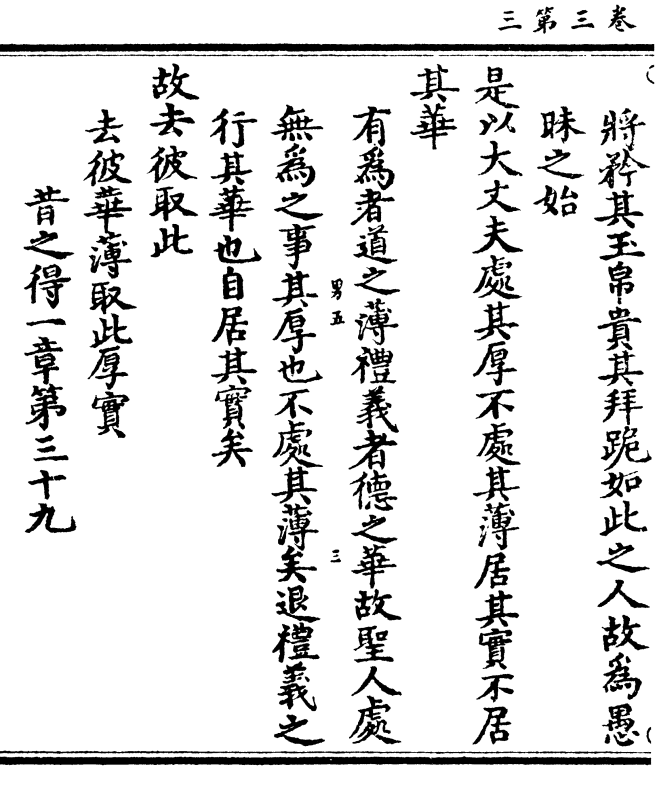 三第三卷
將矜其玉帛貴其拜跪如此之人故為愚
昧之始
是以大丈夫處其厚不處其薄居其實不居
其華
有為者道之薄禮義者德之華故聖人處
男五
三
無為之事其厚也不處其薄矣退禮義之
行其華也自居其實矣
故去彼取此
去彼華薄取此厚實
昔之得一章第三十九